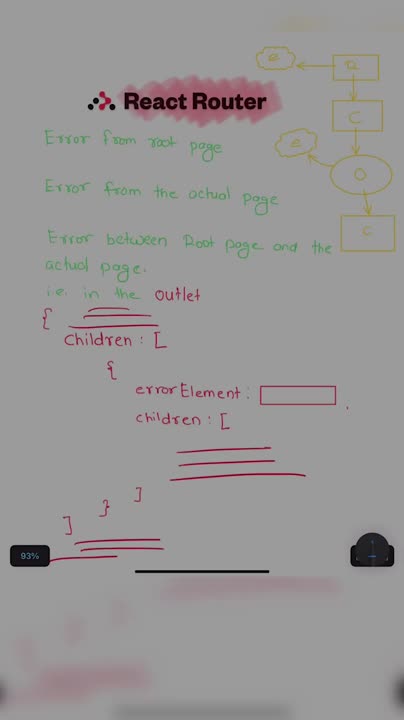 React Router
e
R
C
e
O
C
Error from root page
Error from the actual page
Error between Root page and the
actual page.
i.e. in the outlet
{
children : [
{
errorElement :
children : [
]
}
]
93%